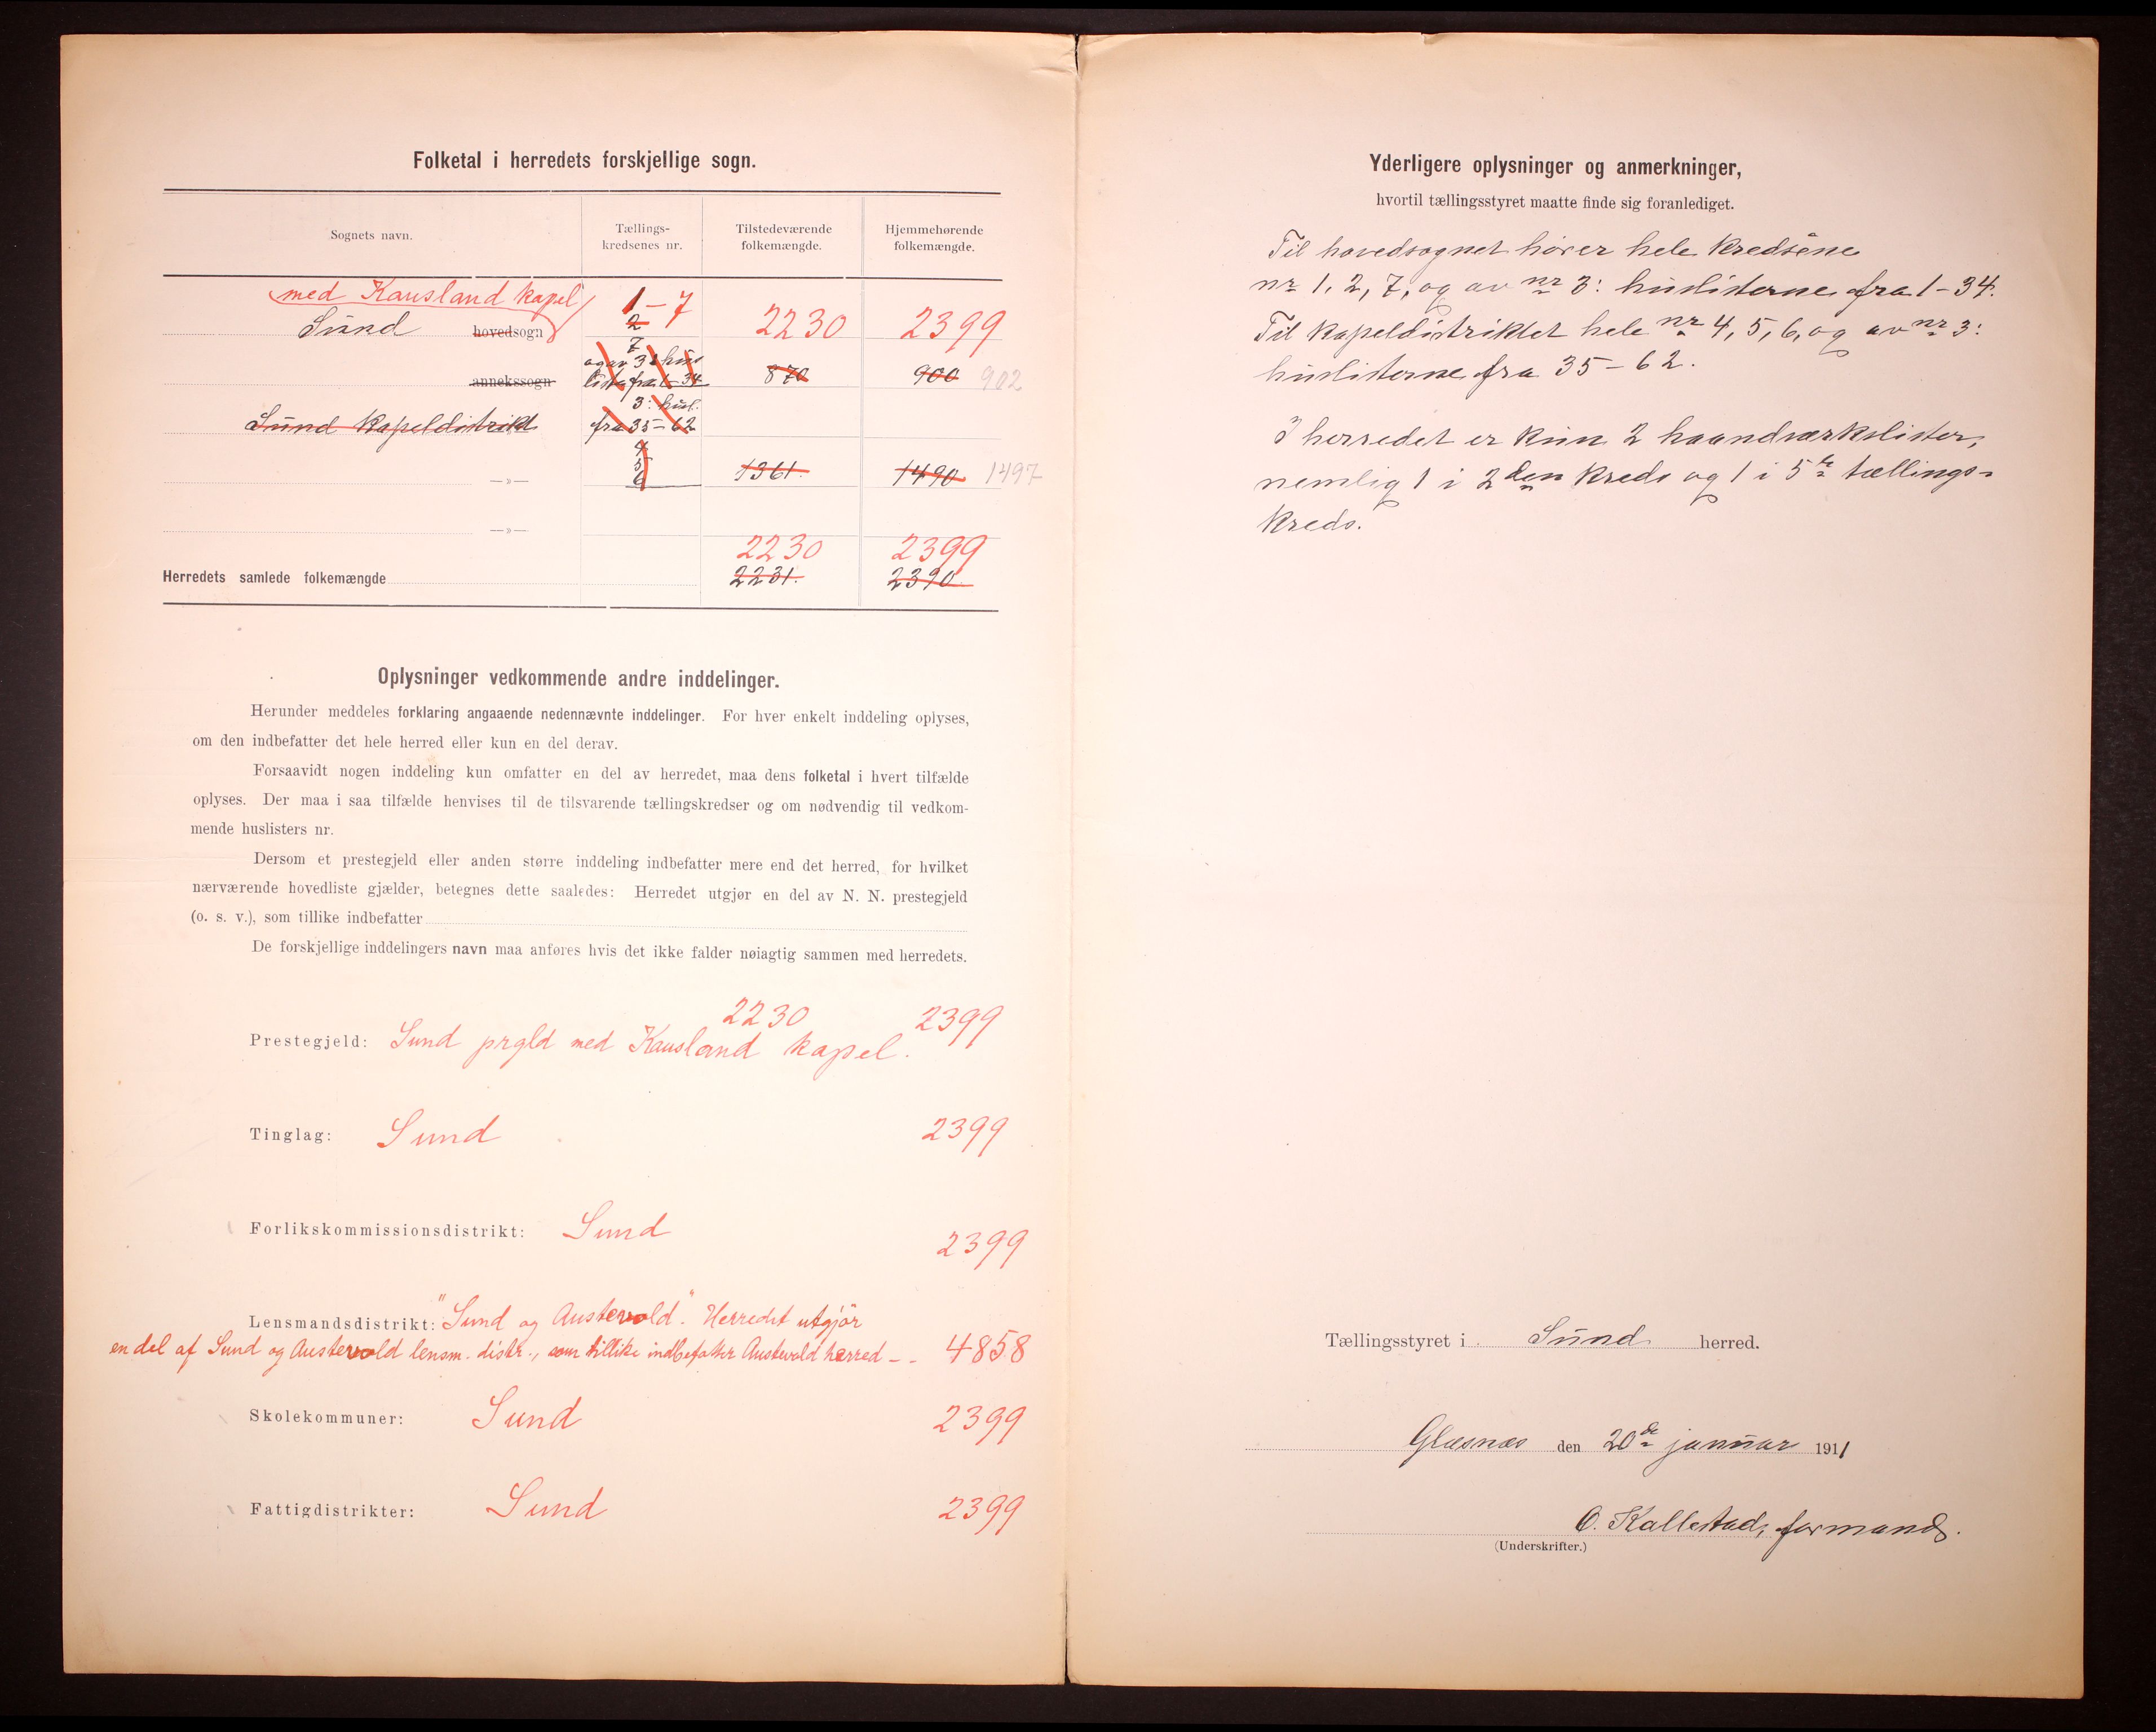 Folketal i herredets forskjellige sogn.
Sognets navn.
Tællings-
kredsenes nr.
Tilstedeværende
folkemængde.
Hjemmehørende
folkemængde.
med Kausland kapel
Sund hovedsogn
1 - 7
2
7
2230
2399
annekssogn
og av 3 hus
liste fra 1-34
870
900 902
Sund kapeldistrikt
3: husl.
fra 35-62
4
5
6
—»—
1361.
1490 1497
—»—
2230
2399
Herredets samlede folkemængde
2231.
2390.
Oplysninger vedkommende andre inddelinger.
Herunder meddeles forklaring angaaende nedennævnte inddelinger. For hver enkelt inddeling oplyses,
om den indbefatter det hele herred eller kun en del derav.
Forsaavidt nogen inddeling kun omfatter en del av herredet, maa dens folketal i hvert tilfælde
oplyses. Der maa i saa tilfælde henvises til de tilsvarende tællingskredser og om nødvendig til vedkom-
mende huslisters nr.
Dersom et prestegjeld eller anden større inddeling indbefatter mere end det herred, for hvilket
nærværende hovedliste gjælder, betegnes dette saaledes: Herredet utgjør en del av N. N. prestegjeld
(o. s. v.), som tillike indbefatter
De forskjellige inddelingers navn maa anføres hvis det ikke falder nøiagtig sammen med herredets.
2230 2399
Prestegjeld: Sund prgld med Kausland kapel.
Tinglag: Sund 2399
Forlikskommissionsdistrikt: Sund 2399
Lensmandsdistrikt: "Sund og Austevold". Herredet utgjör
en del af Sund og Austevold lensm. distr., som tillike indbefatter Austevold herred - - 4858
Skolekommuner: Sund 2399
Fattigdistrikter: Sund 2399
Yderligere oplysninger og anmerkninger,
hvortil tællingsstyret maatte finde sig foranlediget.
Til hovedsognet hører hele kredsene
nr 1, 2, 7, og av nr 3: huslisterne fra 1-34.
Til kapeldistriktet hele nr 4, 5, 6, og av nr 3:
huslisterne fra 35-62.
I herredet er kun 2 haandværkslister,
nemlig 1 i 2den kreds og 1 i 5te tællings-
kreds.
Tællingsstyret i Sund herred.
Glæsnæs den 20de januar 1911
O. Kallestad, formand.
(Underskrifter.)